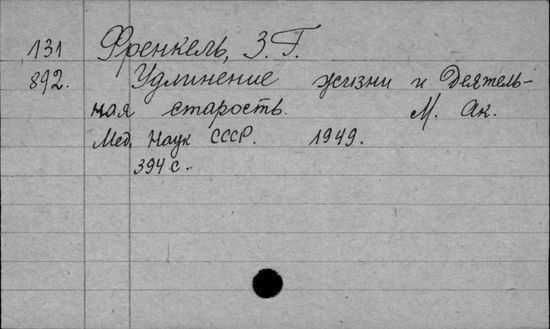 131 Френкель, З. Г.
892. Удлинение жизни и Деятель-
ная старость. М. Ак.
Мед. Наук СССР. 1949.
394 с.